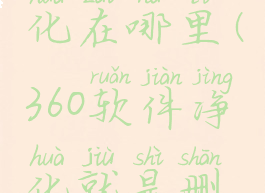 化在哪里(
ruǎn jiàn jìng
360软件净
huà jiù shì shān
化就是删